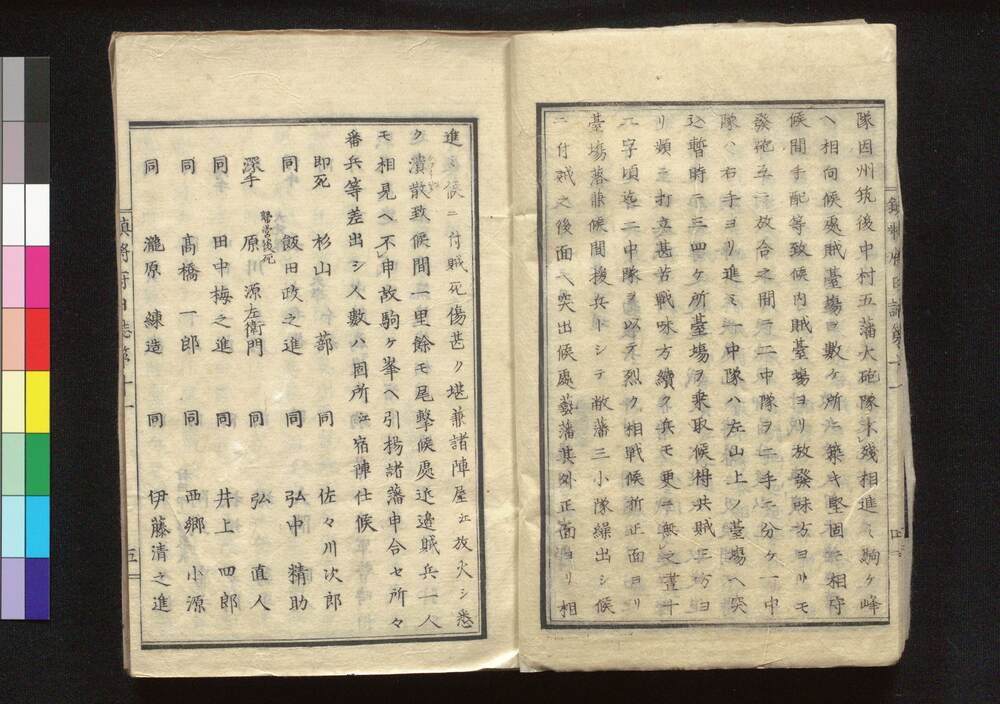 隊因州筑後中村五藩大砲隊不殘相進ミ駒ケ峰
ヘ相向候處賊臺場ヲ數ケ所ニ築キ堅固ニ相守
候間手配等致候内賊臺場ヨリ放發味方ヨリモ
發砲互ニ放合之間ニ二中隊ヲ二手ニ分ケ一中
隊ハ右手ヨリ進ミ一中隊ハ左山上ノ臺場ヘ突
込暫時ニ三四ケ所臺場ヲ乘取候得共賊三方ヨ
リ頻ニ打立甚苦戰味方續ク兵モ更ニ無之晝十
二字頃迄二中隊ヲ以テ烈ク相戰候折正面ヨリ
臺場落兼候間援兵トシテ敝藩三小隊繰出シ候
ニ付賊之後面ヘ突出候處藝藩其外正面ヨリ相
進ミ候ニ付賊死傷甚ク堪兼諸陣屋江放火シ悉
ク潰散致候間一里餘モ尾擊候處近邊賊兵一人
モ相見ヘ不申故駒ケ峯ヘ引揚諸藩申合セ所々
番兵等差出シ人數ハ固所江宿陣仕候
即死 杉山 蔀 同 佐々川次郎
同 飯田政之進 同 弘中 精助
深手 原川源左衛門 同 弘 直人
同 田中梅之進 同 井上 四郎
同 髙橋 一郎 同 西郷 小源
同 瀧原 練造 同 伊藤清之進
鎮將府日誌第十一
五